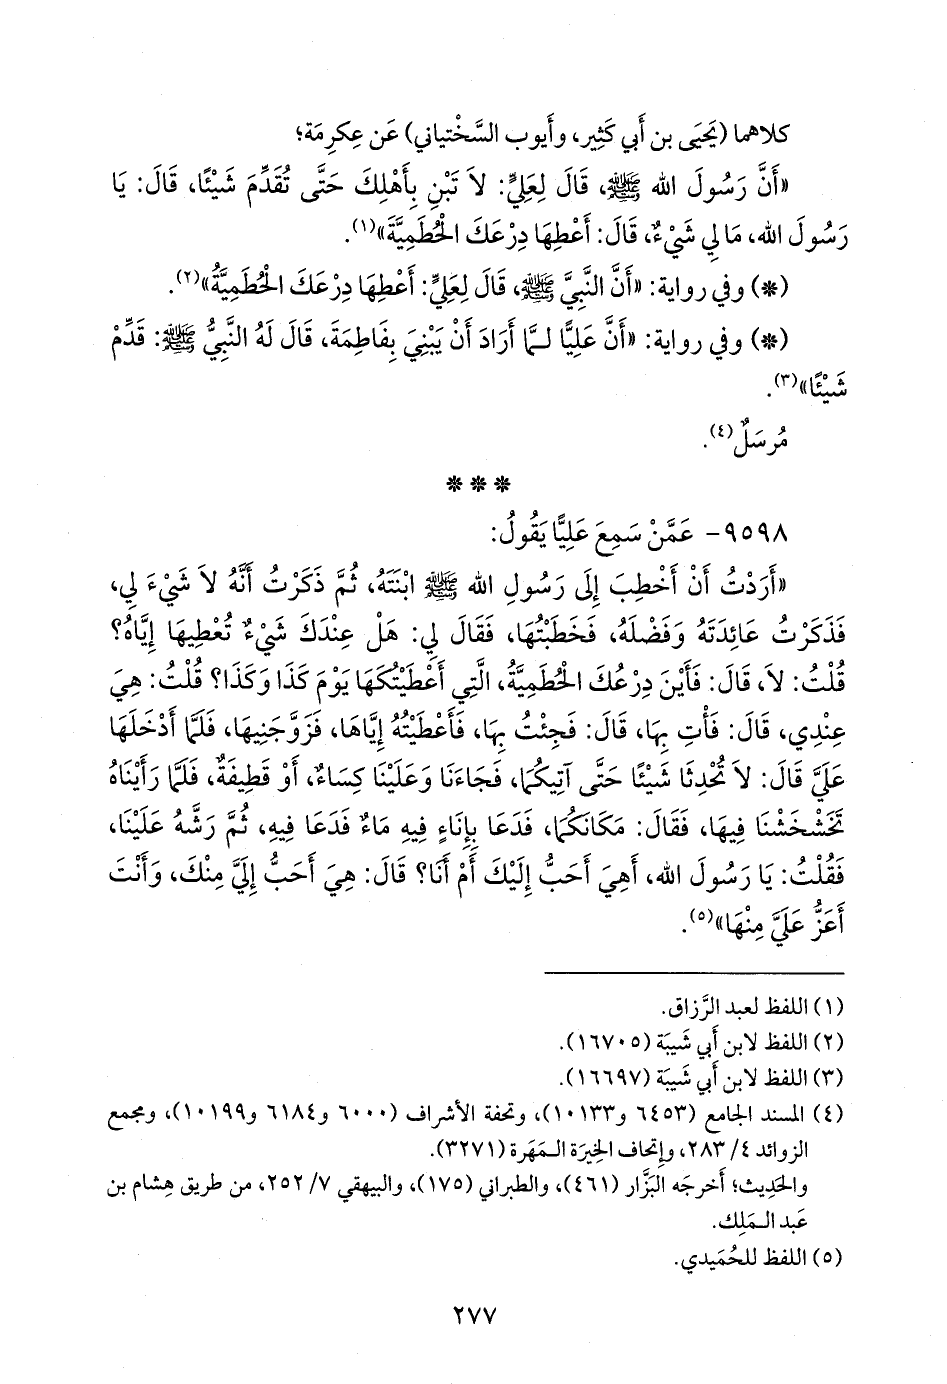 كلاهما (يَحيَى بن أَبي كَثِير، وأَيوب السَّخْتياني) عَن عِكرِمَة؛
«أَنَّ رَسُولَ الله ﷺ، قَالَ لِعَلِيٍّ: لاَ تَبْنِ بِأَهْلِكَ حَتَّى تُقَدِّمَ شَيْئًا، قَالَ: يَا
رَسُولَ الله، مَا لِي شَيْءٌ، قَالَ: أَعْطِهَا دِرْعَكَ الْحُطَمِيَّةَ»(١).
(*) وفي رواية: «أَنَّ النَّبِيَّ ﷺ، قَالَ لِعَلِيٍّ: أَعْطِهَا دِرْعَكَ الْحُطَمِيَّةُ»(٢).
(*) وفي رواية: «أَنَّ عَلِيًّا لَـمَّا أَرَادَ أَنْ يَبْنِيَ بِفَاطِمَةَ، قَالَ لَهُ النَّبِيُّ ﷺ: قَدِّمْ
شَيْئًا»(٣).
مُرسَلٌ(٤).
* * *
٩٥٩٨- عَمَّنْ سَمِعَ عَلِيًّا يَقُولُ:
«أَرَدْتُ أَنْ أَخْطِبَ إِلَى رَسُولِ الله ﷺ ابْنَتَهُ، ثُمَّ ذَكَرْتُ أَنَّهُ لاَ شَيْءَ لِي،
فَذَكَرْتُ عَائِدَتَهُ وَفَضْلَهُ، فَخَطَبْتُهَا، فَقَالَ لِي: هَلْ عِنْدَكَ شَيْءٌ تُعْطِيهَا إِيَّاهُ؟
قُلْتُ: لاَ، قَالَ: فَأَيْنَ دِرْعُكَ الْحُطَمِيَّةُ، الَّتِي أَعْطَيْتُكَهَا يَوْمَ كَذَا وَكَذَا؟ قُلْتُ: هِيَ
عِنْدِي، قَالَ: فَأْتِ بِهَا، قَالَ: فَجِئْتُ بِهَا، فَأَعْطَيْتُهُ إِيَّاهَا، فَزَوَّجَنِيهَا، فَلَمَّا أَدْخَلَهَا
عَلَيَّ قَالَ: لاَ تُحْدِثَا شَيْئًا حَتَّى آتِيكُمَا، فَجَاءَنَا وَعَلَيْنَا كِسَاءٌ، أَوْ قَطِيفَةٌ، فَلَمَّا رَأَيْنَاهُ
تَخَشْخَشْنَا فِيهَا، فَقَالَ: مَكَانَكُمَا، فَدَعَا بِإِنَاءٍ فِيهِ مَاءٌ فَدَعَا فِيهِ، ثُمَّ رَشَّهُ عَلَيْنَا،
فَقُلْتُ: يَا رَسُولَ الله، أَهِيَ أَحَبُّ إِلَيْكَ أَمْ أَنَا؟ قَالَ: هِيَ أَحَبُّ إِلَيَّ مِنْكَ، وَأَنْتَ
أَعَزُّ عَلَيَّ مِنْهَا»(٥).
(١) اللفظ لعبد الرَّزاق.
(٢) اللفظ لابن أَبي شَيبَة (١٦٧٠٥).
(٣) اللفظ لابن أَبي شَيبَة (١٦٦٩٧).
(٤) المسند الجامع (٦٤٥٣ و١٠١٣٣)، وتحفة الأشراف (٦٠٠٠ و٦١٨٤ و١٠١٩٩)، ومجمع
الزوائد ٤/ ٢٨٣، وإتحاف الخِيرَة الـمَهَرة (٣٢٧١).
والحَدِيث؛ أَخرجَه البَزَّار (٤٦١)، والطبراني (١٧٥)، والبيهقي ٧/ ٢٥٢، من طريق هِشام بن
عَبد الـمَلِك.
(٥) اللفظ للحُمَيدي.
٢٧٧